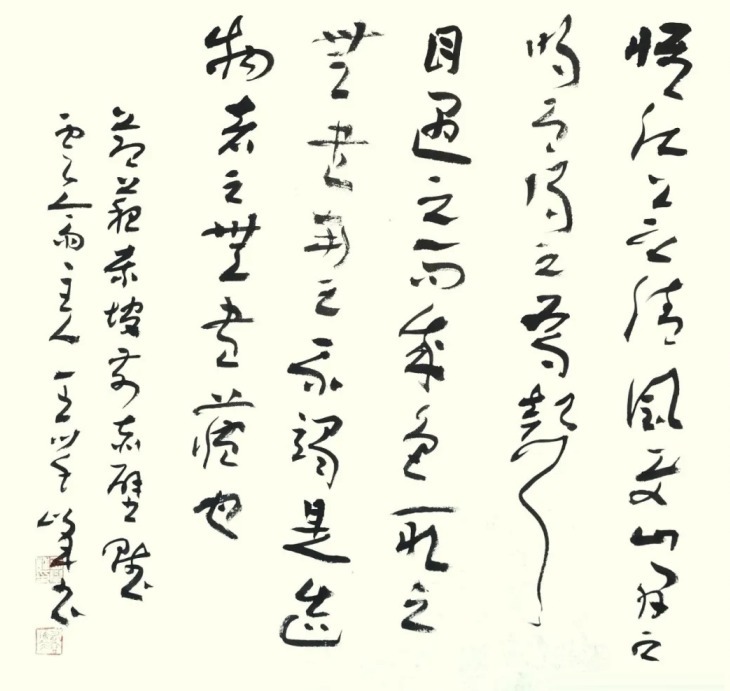 惟江上之清風与山間之
明耳得之為聲
目遇之而成色取之
無盡用之不竭是造
物者之無盡藏也
節蘇東坡前赤壁賦
主人王学峰书